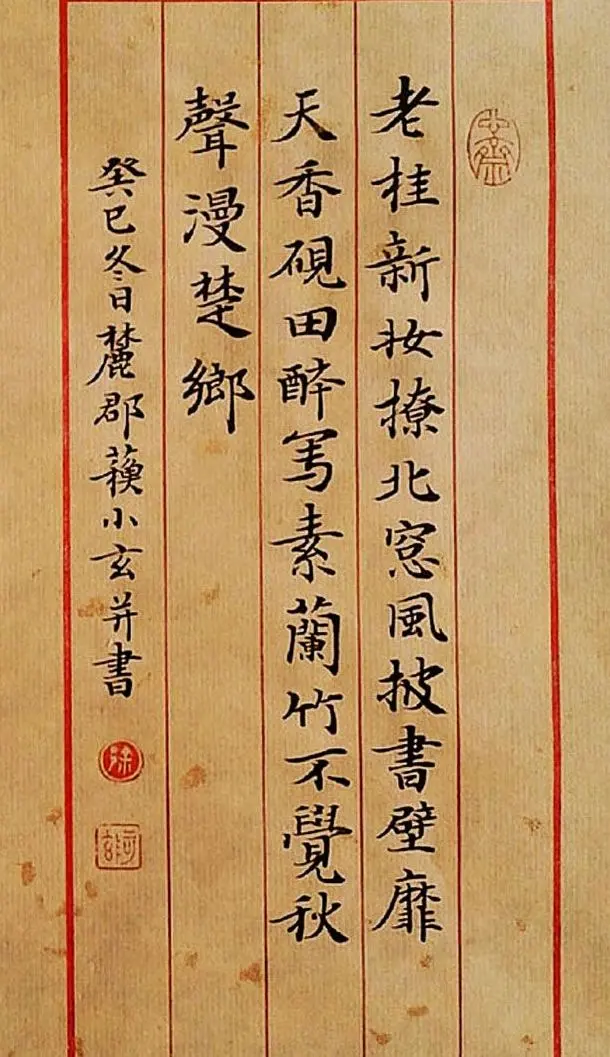 老桂新妆撩北窓風披書壁靡
天香硯田醉写素蘭竹不覺秋
聲漫楚鄉
癸巳冬日麓郡小玄并書